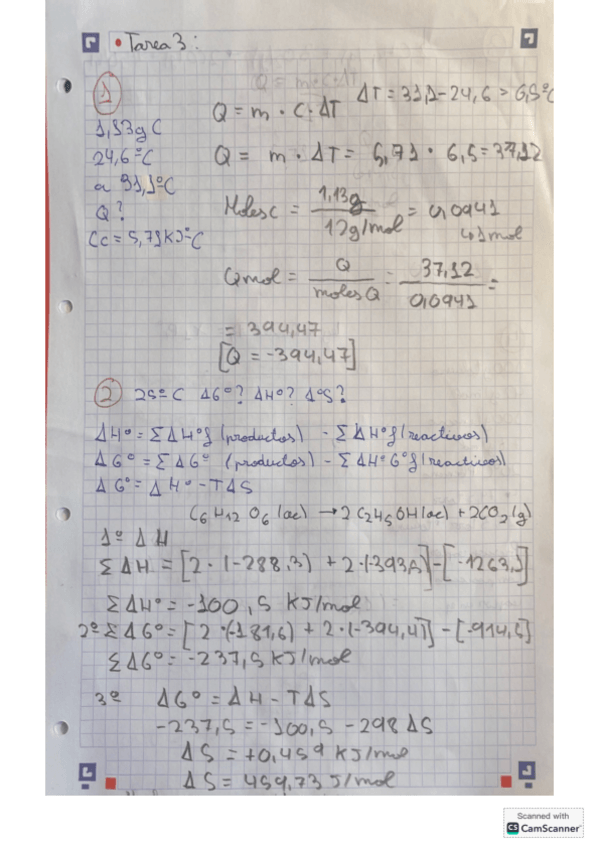 • Tarea 3:
1
1,13g C
24,6ºC
a 31,1ºC
Q?
Cc = 5,71KJ/ºC
ΔT = 31,1-24,6 > 6,5ºC
Q = m · C · ΔT
Q = m · ΔT = 5,71 · 6,5 = 37,12
Moles C = 1,13g / 12g/mol = 0,0941
↳ 1 mol
Qmol = Q / moles Q = 37,12 / 0,0941 =
= 394,47
[Q = -394,47]
2 25º C ΔGº? ΔHº? ΔºS?
ΔHº = Σ ΔHºf (productos) - Σ ΔHºf (reactivos)
ΔGº = Σ ΔGº (productos) - Σ ΔHº Gºf (reactivos)
ΔGº = ΔHº - TΔS
C6 H12 O6 (ac) → 2 C2H5 OH (ac) + 2CO2 (g)
1º ΔH
Σ ΔH = [2 · (-288,3) + 2·(-393,5)] - [-1263,1]
Σ ΔHº = -100,5 KJ/mol
2º Σ ΔGº = [2 · (-181,6) + 2 · (-394,4)] - [-914,5]
Σ ΔGº = -237,5 KJ/mol
3º ΔGº = ΔH - TΔS
-237,5 = -100,5 - 298 ΔS
ΔS = +0,459 KJ/mol
ΔS = 459,73 J/mol
Scanned with
CS CamScanner